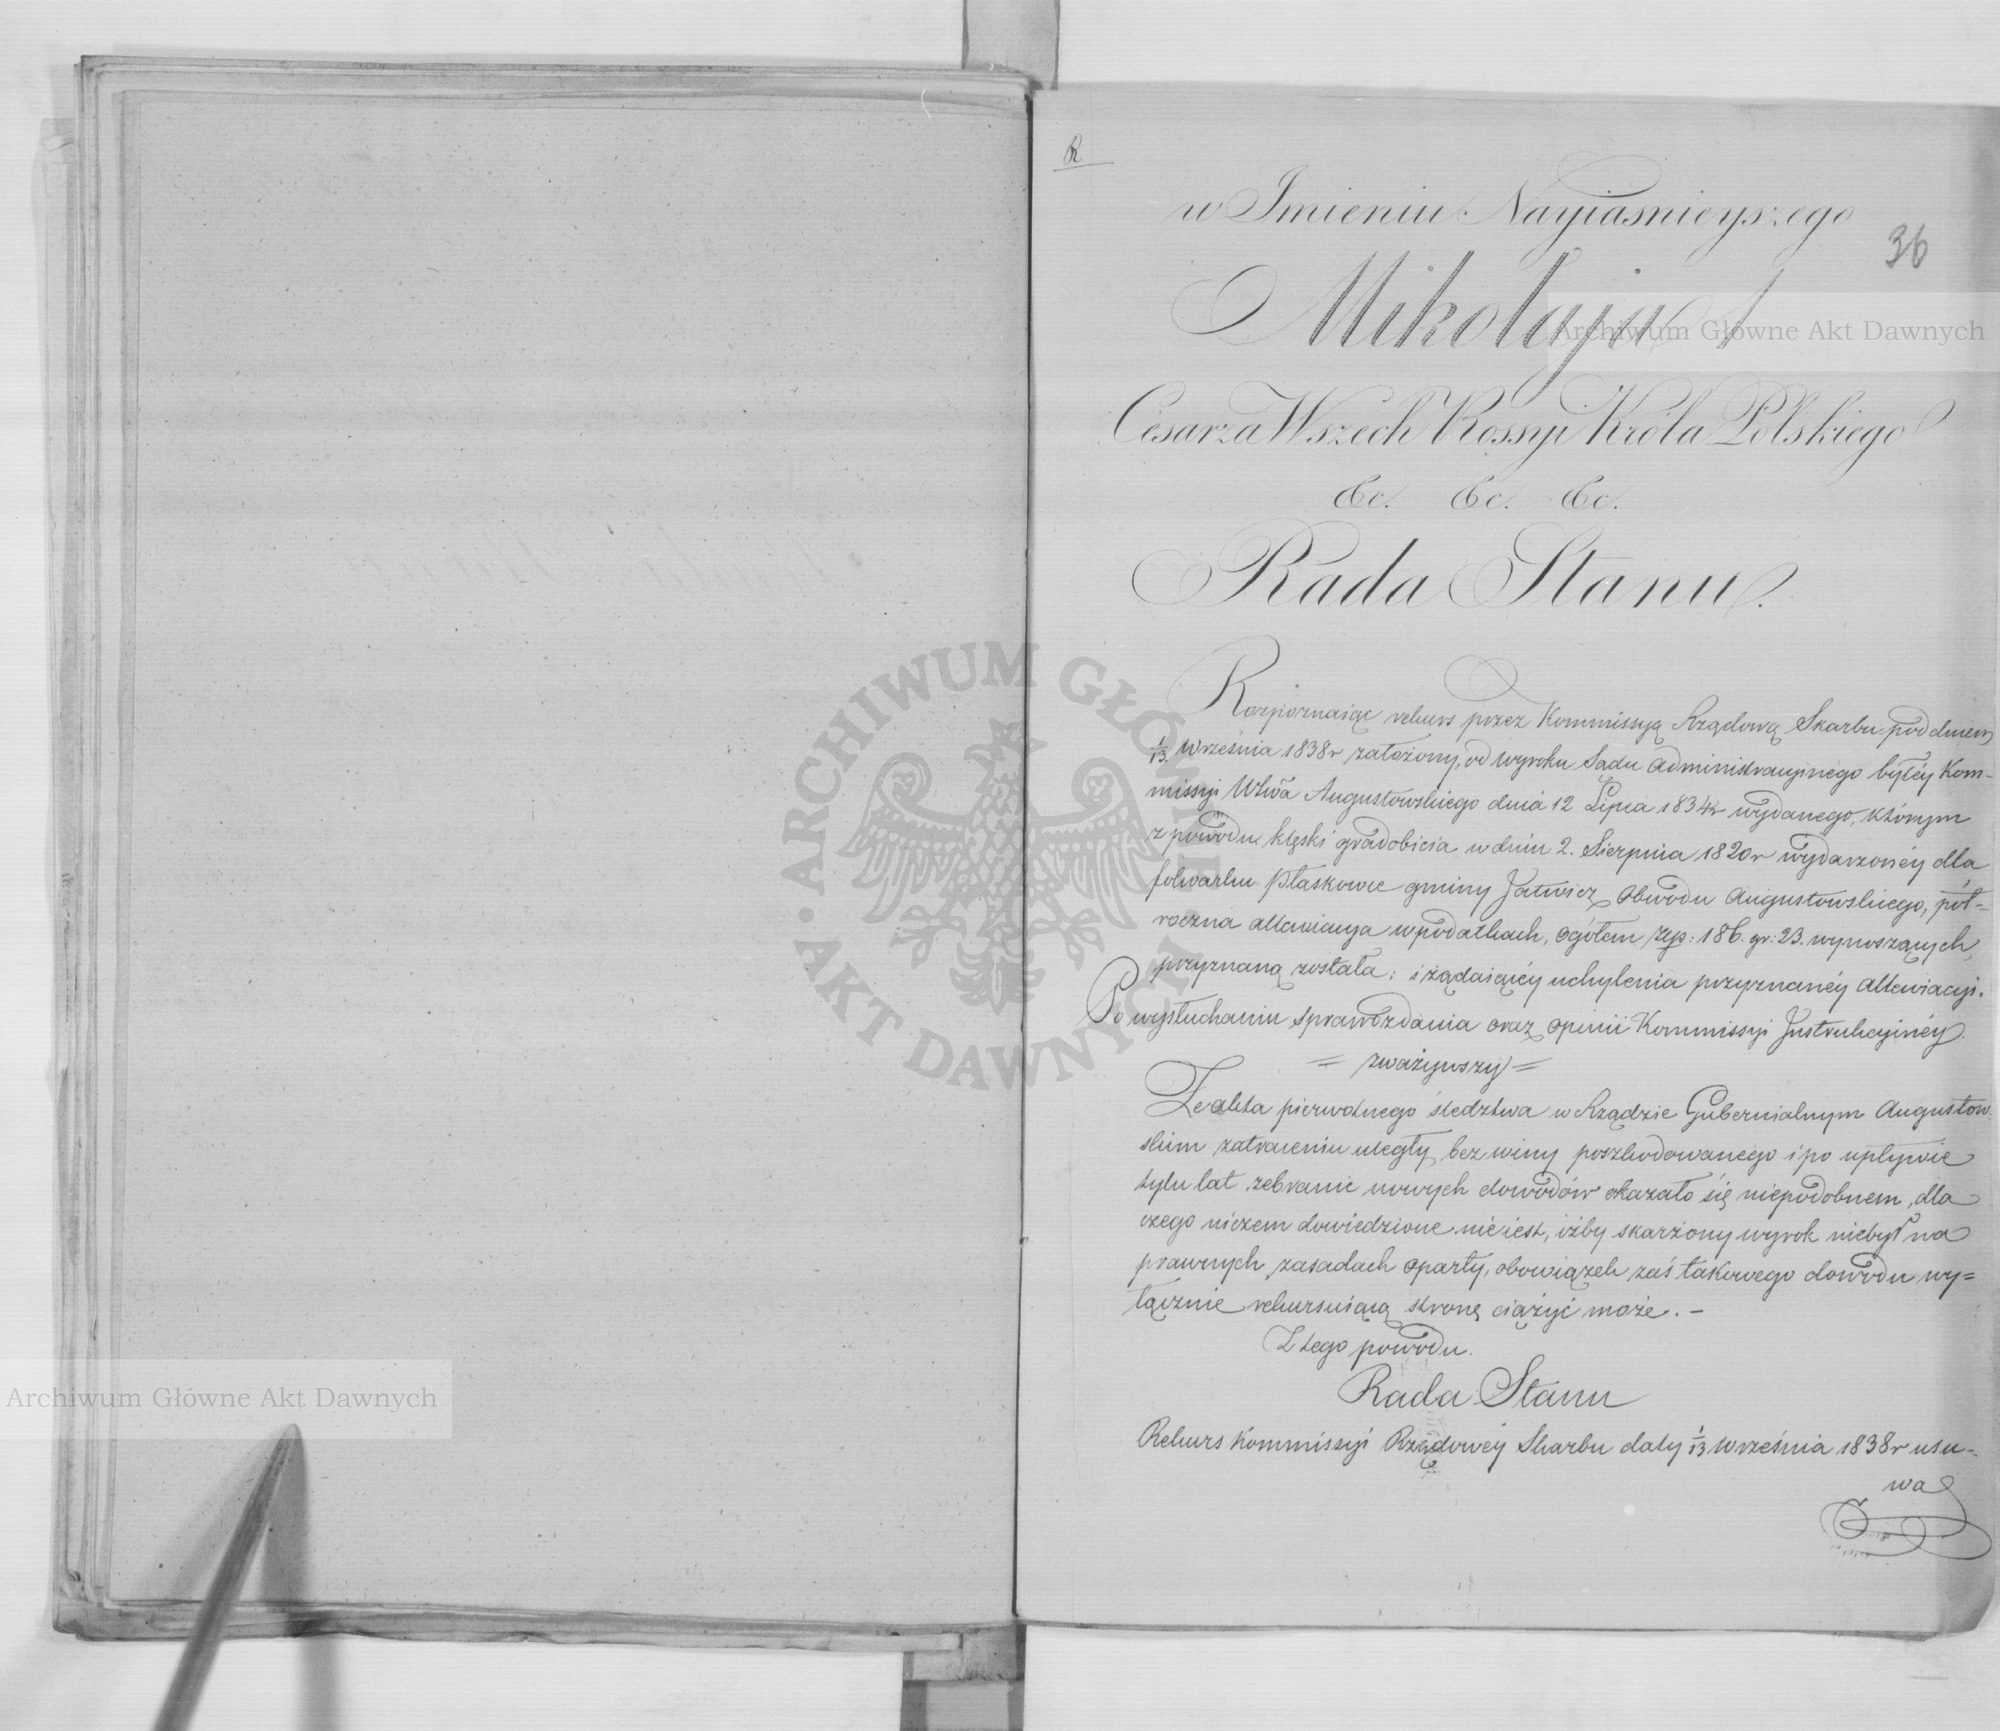 R
w Imieniu Nayiasnieyszego
36
Mikołaja I
Cesarza Wszech Rossyi Króla Polskiego
&c. &c. &c.
Rada Stanu.
Rozpoznaiąc rekurs przez Kommissyą Rządową Skarbu pod dniem
1/13. Września 1838r założony, od wyroku Sądu Administracyinégo byłéy Kom-
missyi Wtwa Augustowskiego dnia 12 Lipca 1834r wydanego, którym
z powodu klęski gradobicia w dniu 2. Sierpnia 1820r wydarzonéy dla
folwarku Płaskowce gminy Jatwiez Obwodu Augustowskiego, pół-
roczna allewiacya w podatkach, ogółem złp: 186. gr: 23. wynoszących,
przyznaną została; i żądaiącéy uchylenia przyznanéy allewiacyi.
Po wysłuchaniu sprawozdania oraz opinii Kommissyi Instrukcyinéy
= zważywszy =
Że akta pierwotnego śledztwa w Rządzie Gubernialnym Augustow
skim zatraceniu uległy bez winy poszkodowanego i po upływie
tylu lat zebranie nowych dowodów okazało się niepodobnem, dla
czego niczem dowiedzione nie iest, iżby skarżony wyrok niebył na
prawnych zasadach oparty, obowiązek zaś takowego dowodu wy=
łącznie rekursuiącą stronę ciążyć może. –
Z tego powodu.
Rada Stanu
Rekurs Kommissyi Rządowéy Skarbu daty 1/13 Września 1838r usu-
wa
Archiwum Główne Akt Dawnych
ARCHIWUM GŁÓWNE AKT DAWNYCH
Archiwum Główne Akt Dawnych